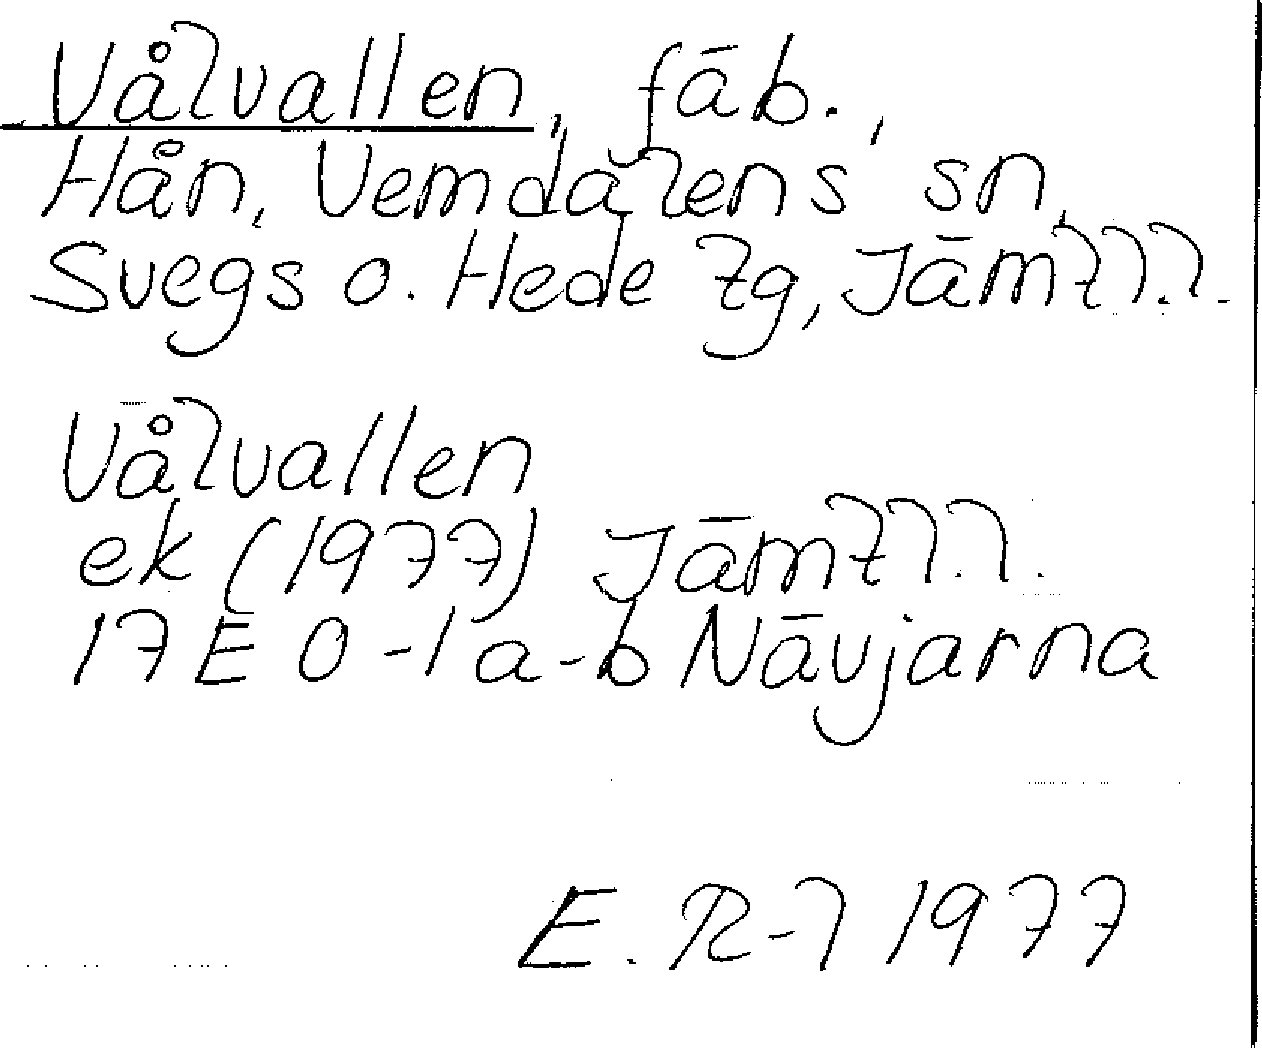 Vålvallen, fäb.,
Hån, Vemdalens sn,
Svegs o. Hede tg, Jämtl.l.
Vålvallen
ek (1977) Jämtl.l.
17E 0-1a-b Nävjarna
E. R-l 1977